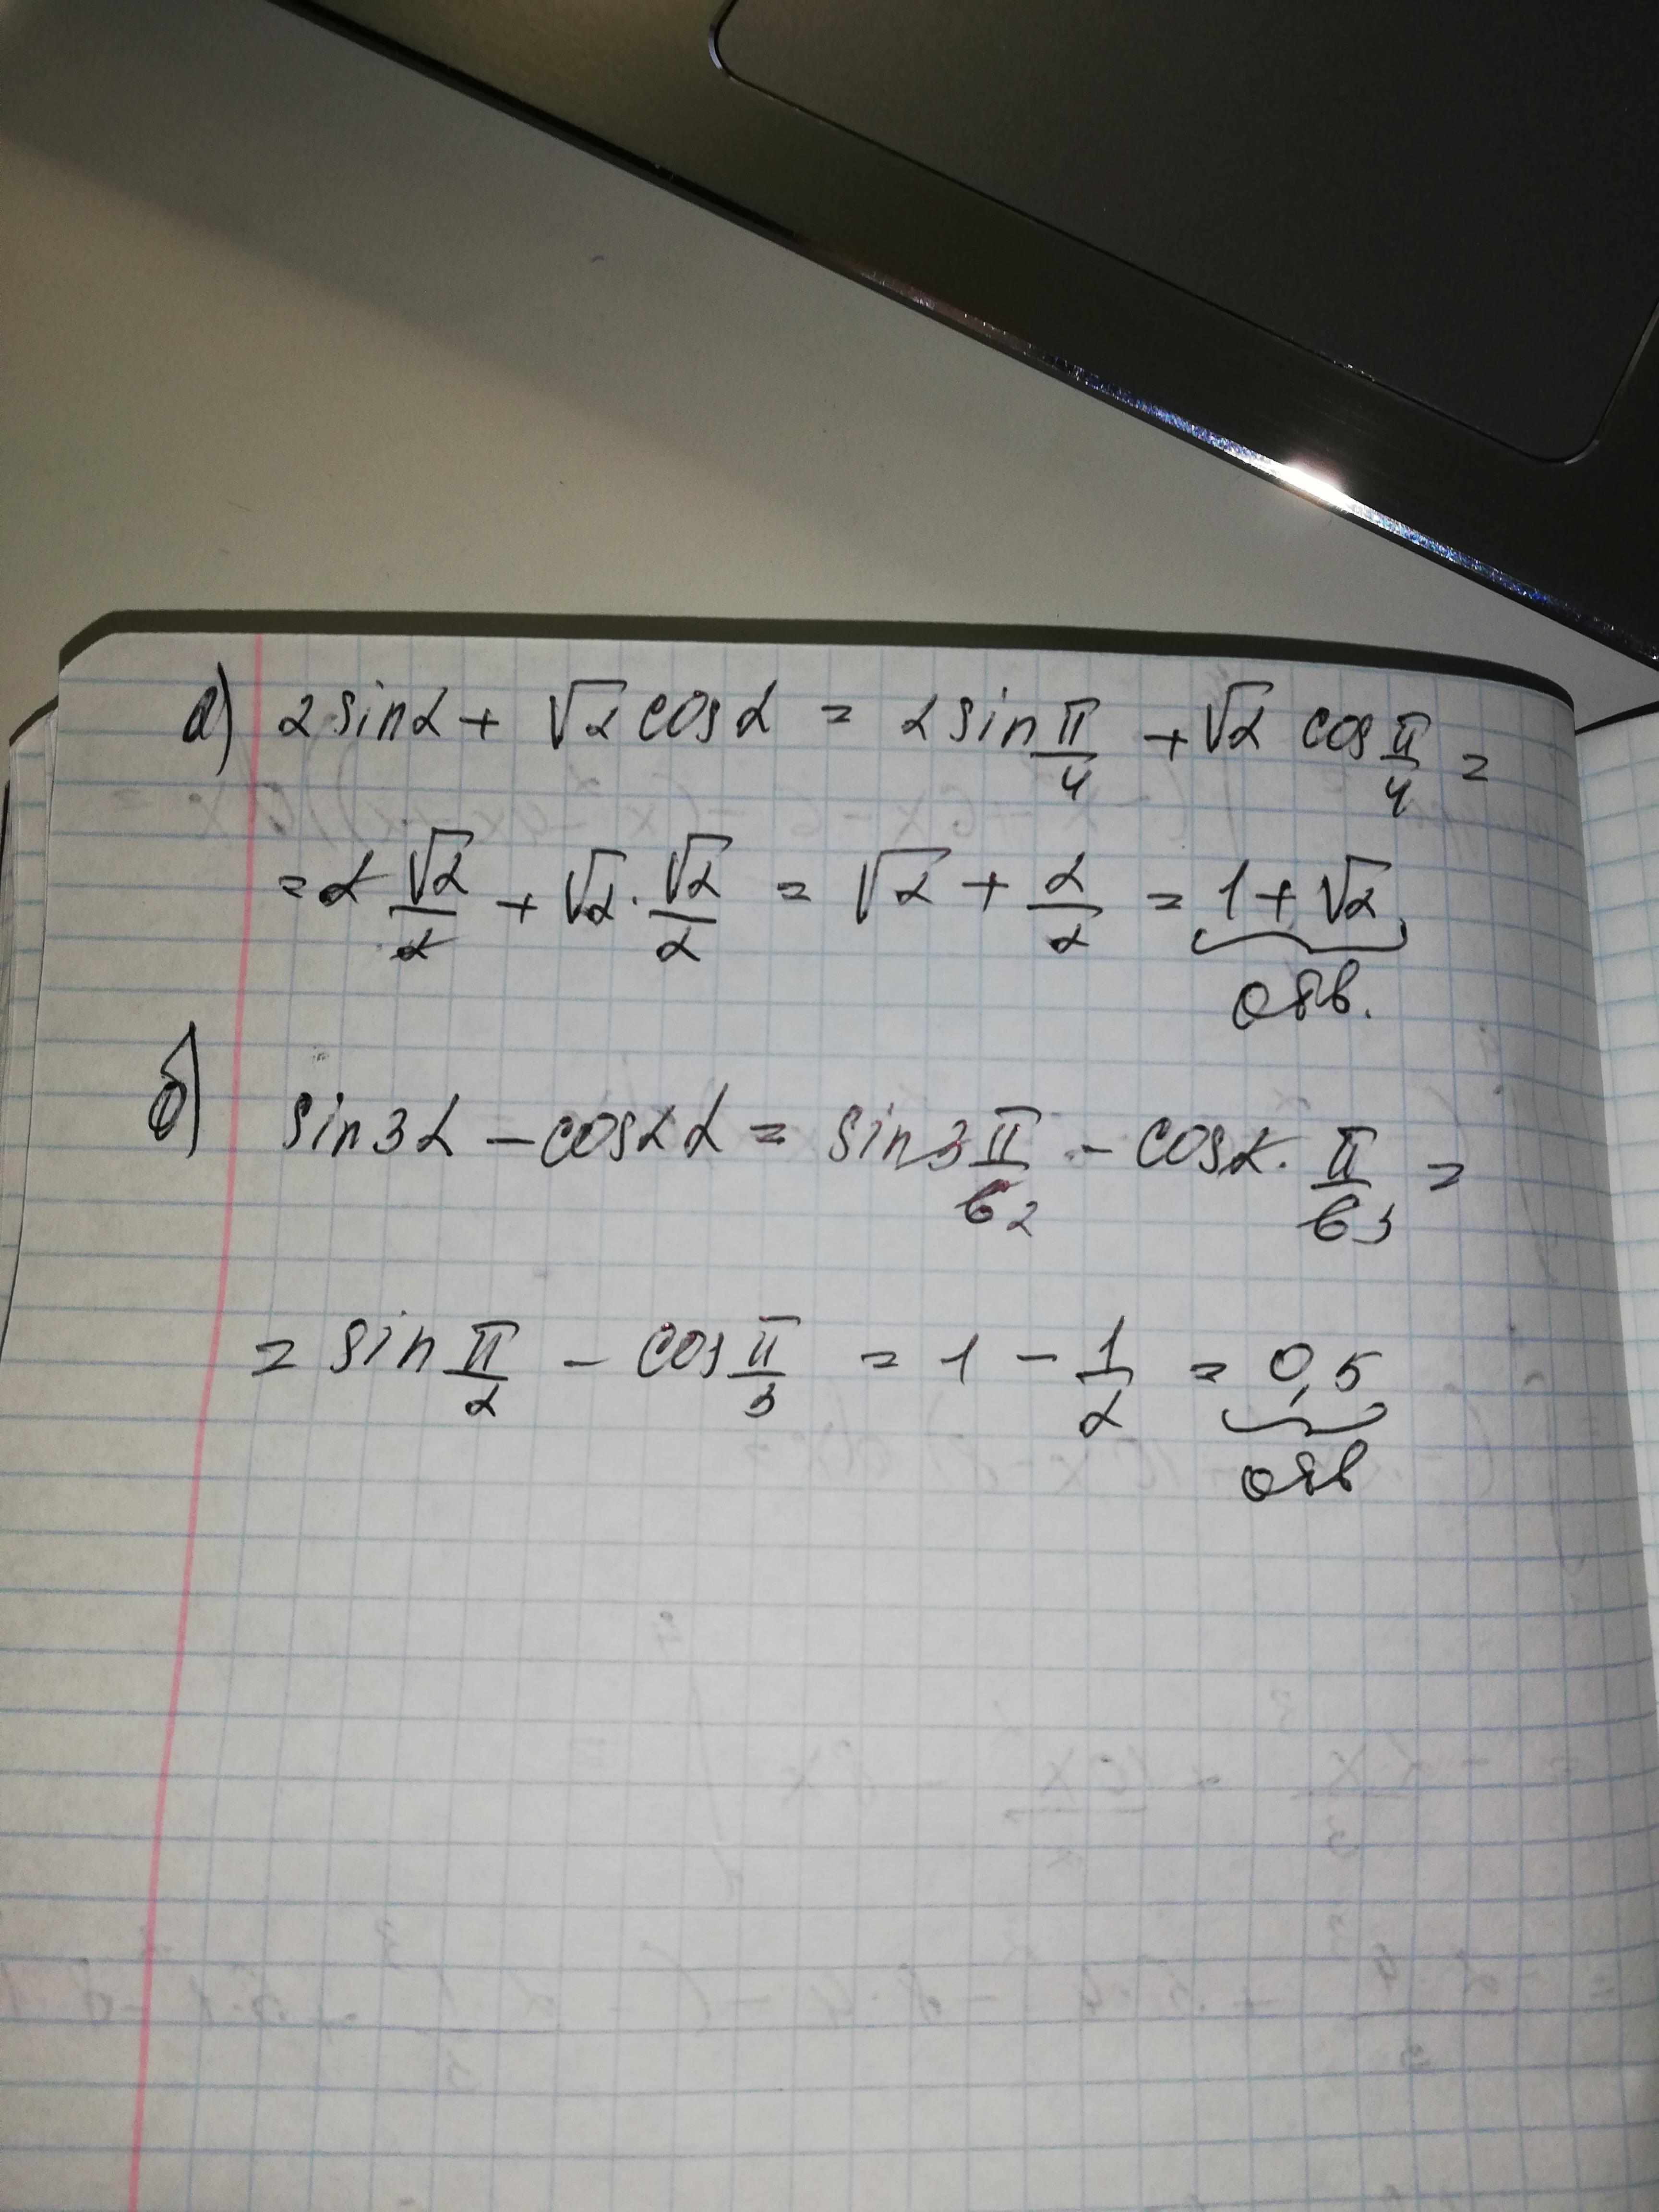 а) 2 sin α + √2 cos α = 2 sin π/4 + √2 cos π/4 =
= 2 √2/2 + √2 · √2/2 = √2 + 2/2 = 1 + √2
отв.
б) sin 3α - cos 2α = sin 3 π/6 2 - cos 2 · π/6 3 =
= sin π/2 - cos π/3 = 1 - 1/2 = 0,5
отв